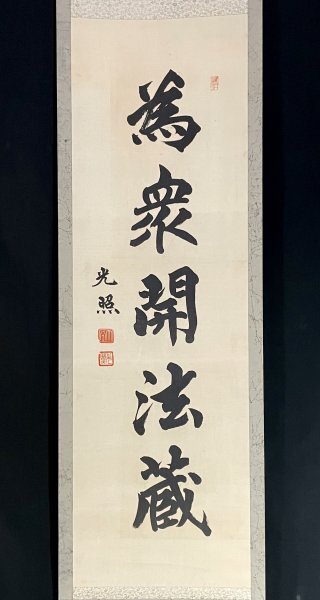 為衆開法蔵
光照